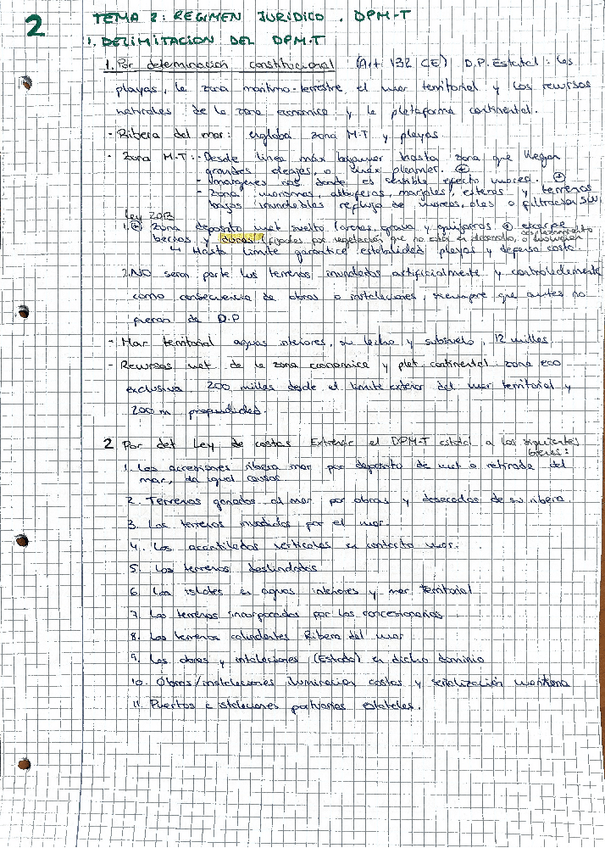 2
TEMA 2: RÉGIMEN JURÍDICO. DPM-T
1. DELIMITACIÓN DEL DPM.T
1. Por determinación constitucional (Art 132 CE) D.P. Estatal: las
playas, la zona marítimo-terrestre el mar territorial y los recursos
naturales de la zona económica y la plataforma continental.
- Ribera del mar: engloba zona M-T y playas
- Zona M-T: - Desde línea máx bajamar hasta zona que llegan
grandes oleajes, o máx pleamar. +
- Márgenes ríos donde es sensible efecto mareas. +
- zona marismas, albuferas, marjales, esteros y terrenos
bajos inundables reflujo de mareas, olas o filtración
Ley 2013
1. + zona depósito mat suelto (arenas, grava y guijarros + escarpe
bermas y dunas (fijadas por vegetación que no está en desarrollo, desplazamiento o evolución
↳ Hasta límite garantice estabilidad playa y defensa costa
2. NO serán parte los terrenos inundados artificialmente y controladamente
como consecuencia de obras o instalaciones, siempre que antes no
fueran de D.P
- Mar territorial aguas interiores, su lecho y subsuelo, 12 millas
- Recursos nat. de la zona económica y plat. continental: zona eco
exclusiva 200 millas desde el límite exterior del mar territorial y
200 m profundidad.
2 Por det Ley de costas Extiende el DPM-T estatal a los siguientes
bienes:
1. Las accesiones ribera mar por depósito de mat o retirada del
mar, da igual causas
2. Terrenos ganados al mar por obras y desecados de su ribera
3. Los terrenos invadidos por el mar.
4. Los acantilados verticales en contacto mar.
5. Los terrenos deslindados
6. Los islotes en aguas interiores y mar territorial
7. Los terrenos incorporados por los concesionarios
8. Los terrenos colindantes Ribera del mar
9. Las obras y intalaciones (Estado) en dicho dominio
10. Obras/instalaciones iluminación costas y señalización marítima
11. Puertos e istalaciones portuarias estatales.